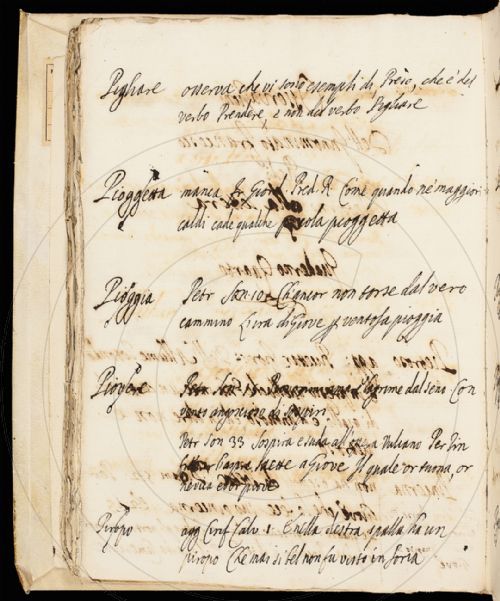 Pigliare osserva che vi sono esempli di Preso, che è del
verbo Prendere, e non del verbo Pigliare
Pioggetta manca. Fr Giord. Pred. R. Come quando ne' maggiori
caldi cade qualche piccola pioggetta
Pioggia Petr Son 10 Ch'ancor non torse dal vero
cammino L'ira di Giove p ventosa pioggia
Piovere Petr Son 15 Piovonmi amare lagrime dal viso Con
vento angoscioso di sospiri
Petr Son 33 Sospira e suda all'opera Vulcano Per rin
frescar l'aspre saette a Giove Il quale or tuona, or
nevica et or piove
Piropo Cirif Calv 1 E nella destra spalla ha un
piropo Che mai sì bel non fu visto in Soria